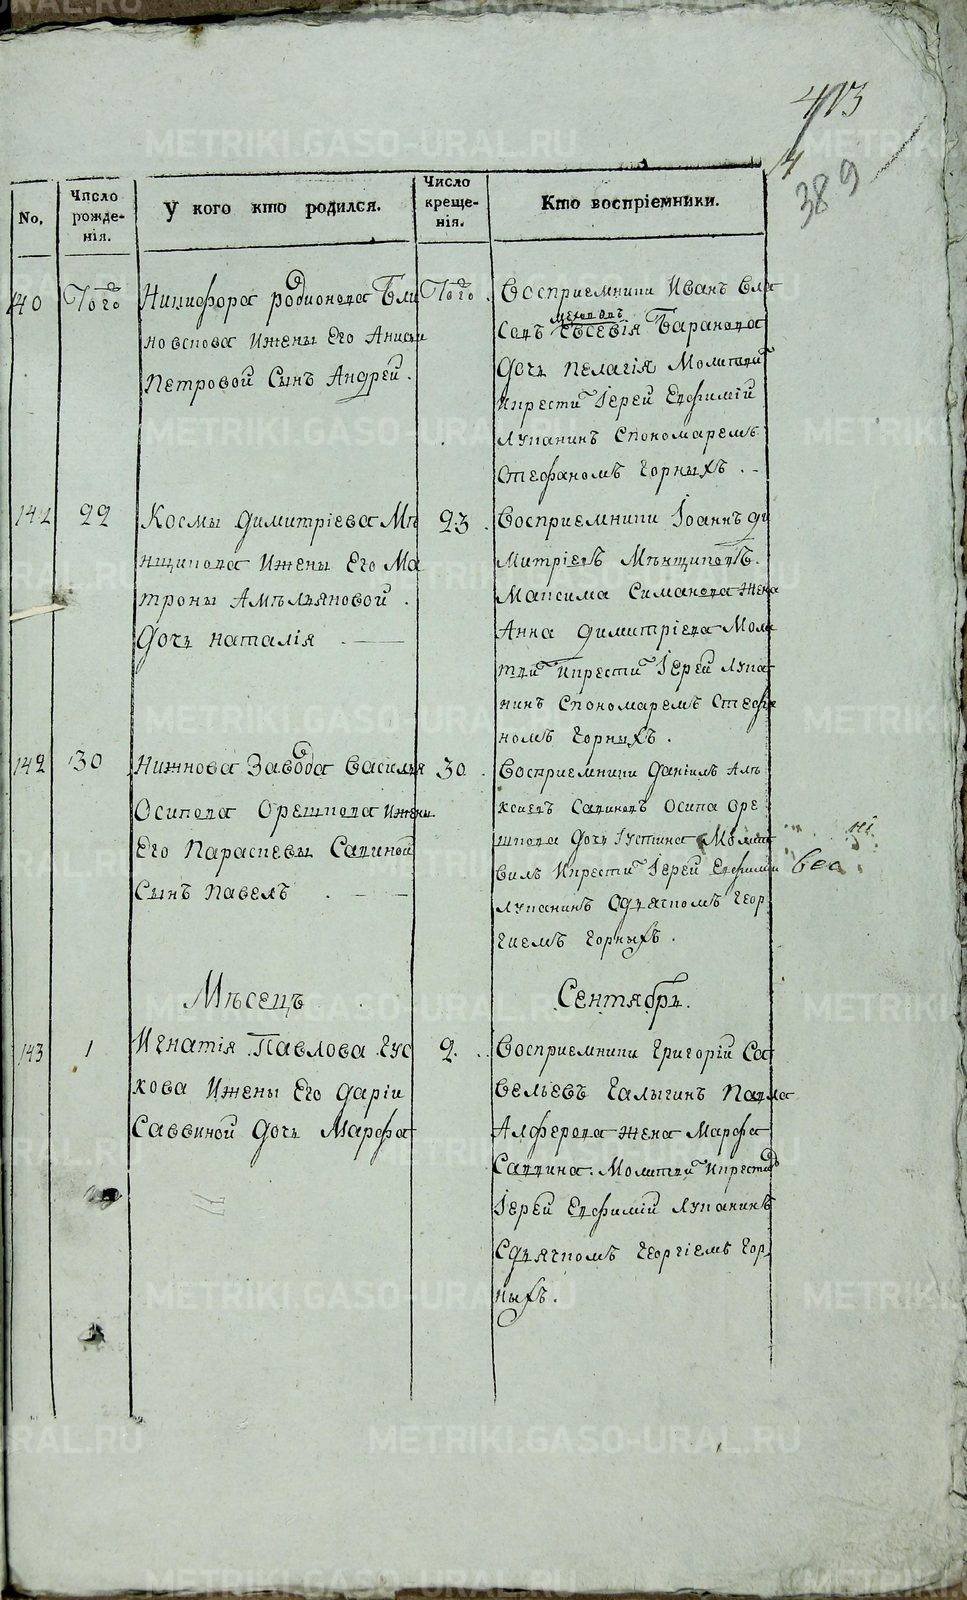 413
4
389
No.
Число рожденія.
У кого кто родился.
Число крещенія.
Кто воспріемники.
140
Того
Никифора родионова Бли
новскова Ижены Его Анисьи
Петровой Сынъ Андрей.
Того.
Восприемники Иванъ Ела
Мелковъ
Евсевія Баранова
Дочь пелагія Молитвил
Икрестил Іерей Евфимій
Лупанинъ Спономаремъ
Стефаномъ Горныхъ.
22
Космы Димитріева Мѣ
нщикова Ижены Его Ма
троны Амѣльяновой.
Дочь наталія
23.
Восприемники Іоаннъ ди
митріевъ Мѣнщиковъ.
Максима Симанова жена
Анна димитріева Моли
твил Икрестил Іерей Лупа
нинъ Спономаремъ Стефа
номъ Горныхъ.
142
30
Нижнова Завода Василья
Осипова Орешкова Ижены
Его Параскевы Савиной
Сынъ Павелъ.
30.
Восприемники Даніилъ Алѣ
ксиевъ Савиновъ Осипа Оре
шкова Дочь Іустина Молит
вилъ Икрестил Іерей Евфимій
Лупанинъ Сдьячкомъ Геор
гиемъ Горныхъ.
Мѣсецъ
Сентябрь.
143
1
Игнатія Павлова Гус
кова Ижены Его Даріи
Саввиной Дочь Марфа
2.
Восприемники Григорій Са
вельевъ Галыгинъ Павла
Алферова жена Марфа
Саввина. Молитвил Икрестил
Іерей Евфимій Лупанинъ
Сдьячкомъ Георгіемъ Гор
ныхъ.
METRIKI.GASO-URAL.RU